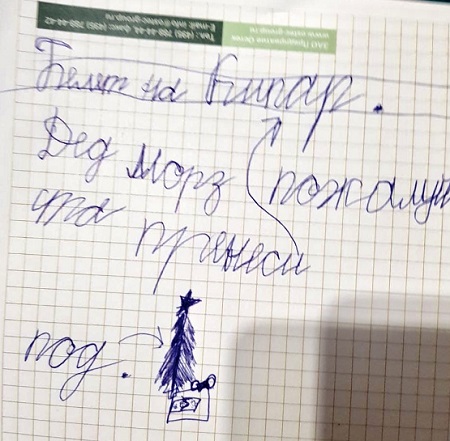 Тел.: (495) 788-44-44, факс (495) 788-44-42
E-mail: info@ostec-group.ru
ЗАО Предприятие Остек
www.ostec-group.ru
Белет на Кипар.
Дед Морз пожалуй
ста принеси
под.